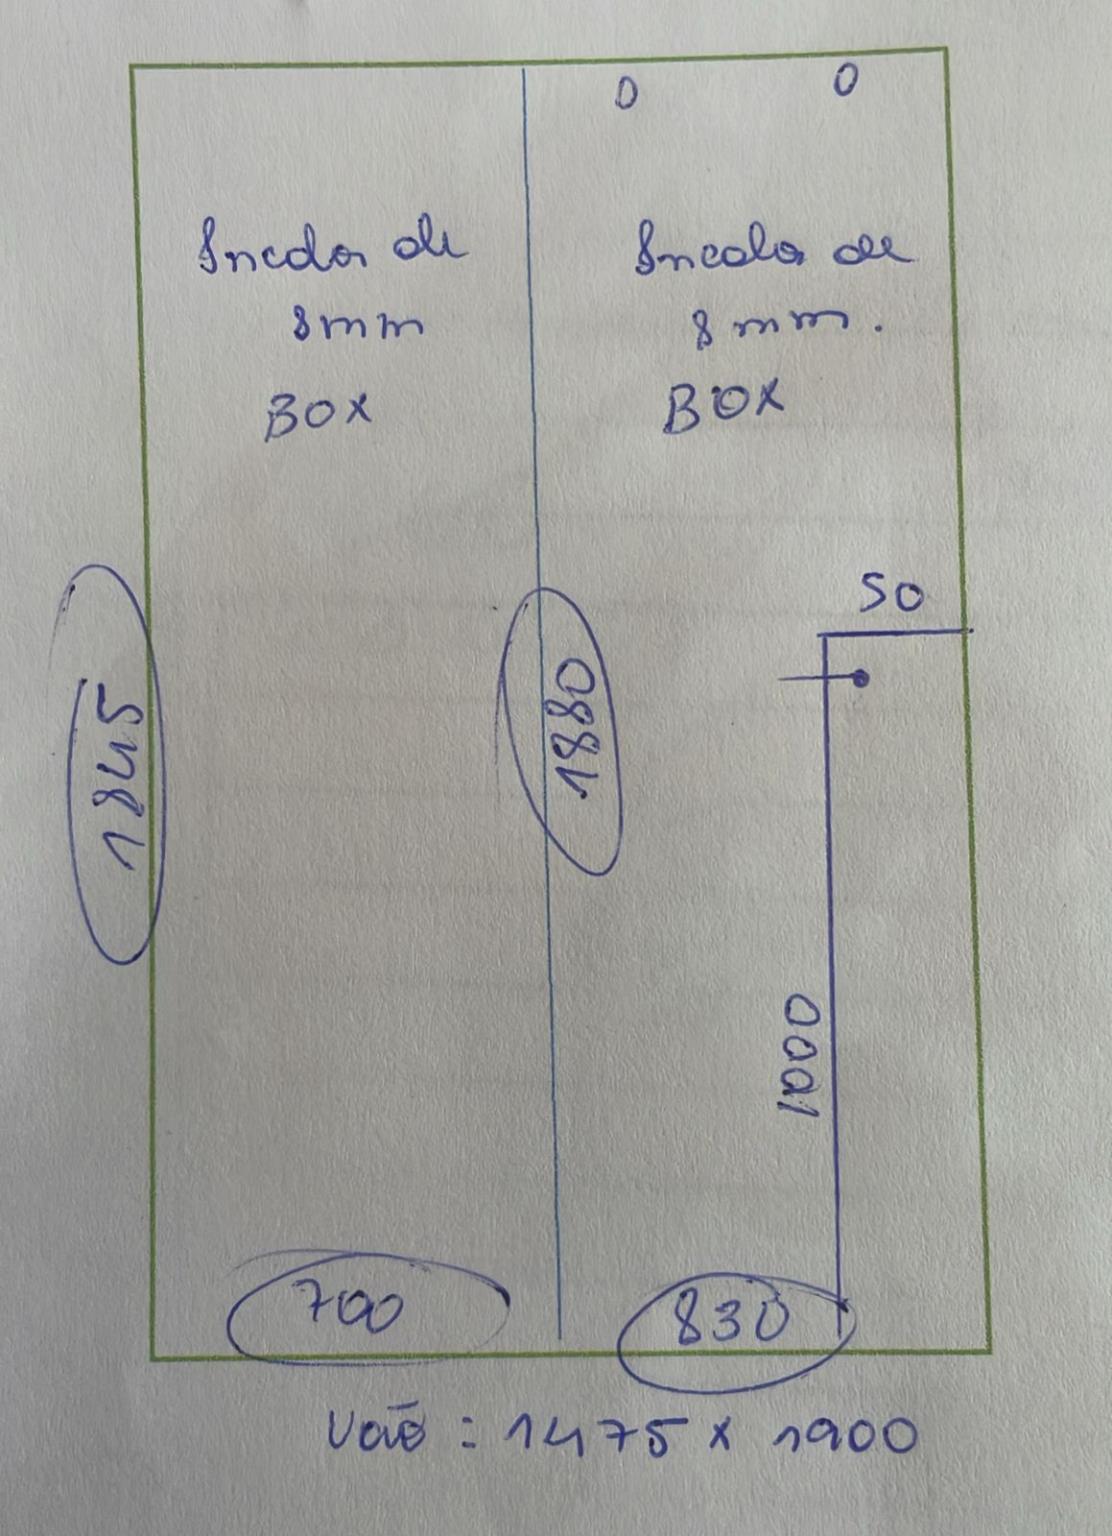 0 0
Incolor de
8mm
BOX
Incolor de
8mm.
BOX
50
1845
1880
1000
700
830
Vão: 1475 x 1900